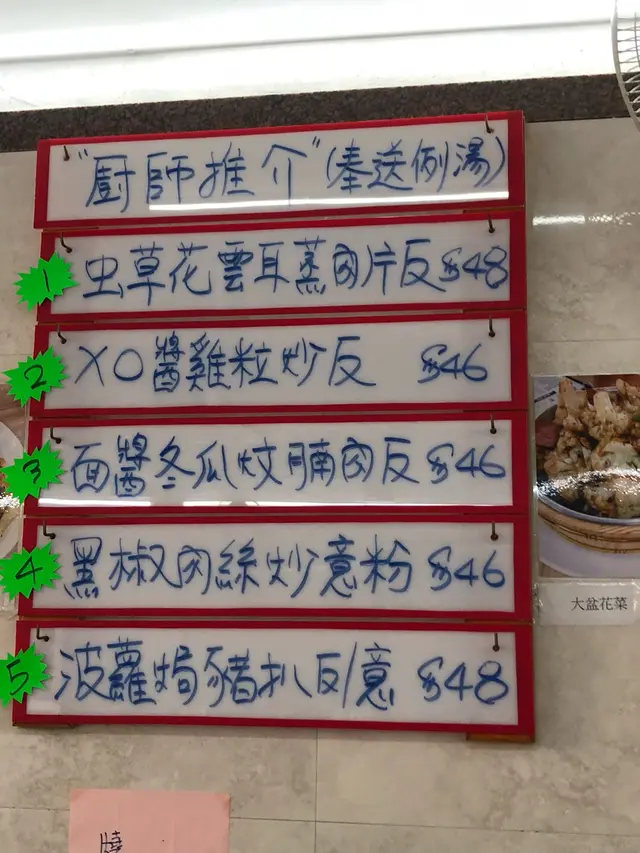 "廚師推介"(奉送例湯)
1 虫草花雲耳蒸肉片反 $48
2 XO醬雞粒炒反 $46
3 面醬冬瓜炆腩肉反 $46
4 黑椒肉絲炒意粉 $46
5 波蘿焗豬扒反/意 $48
大盆花菜
燒